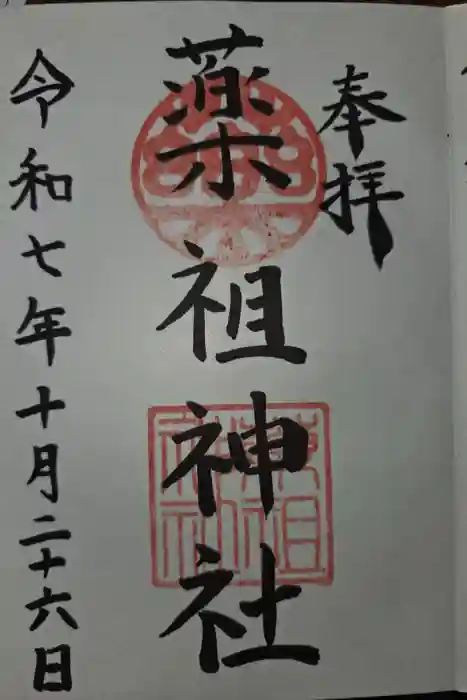 奉拝
薬祖神社
令和七年十月二十六日